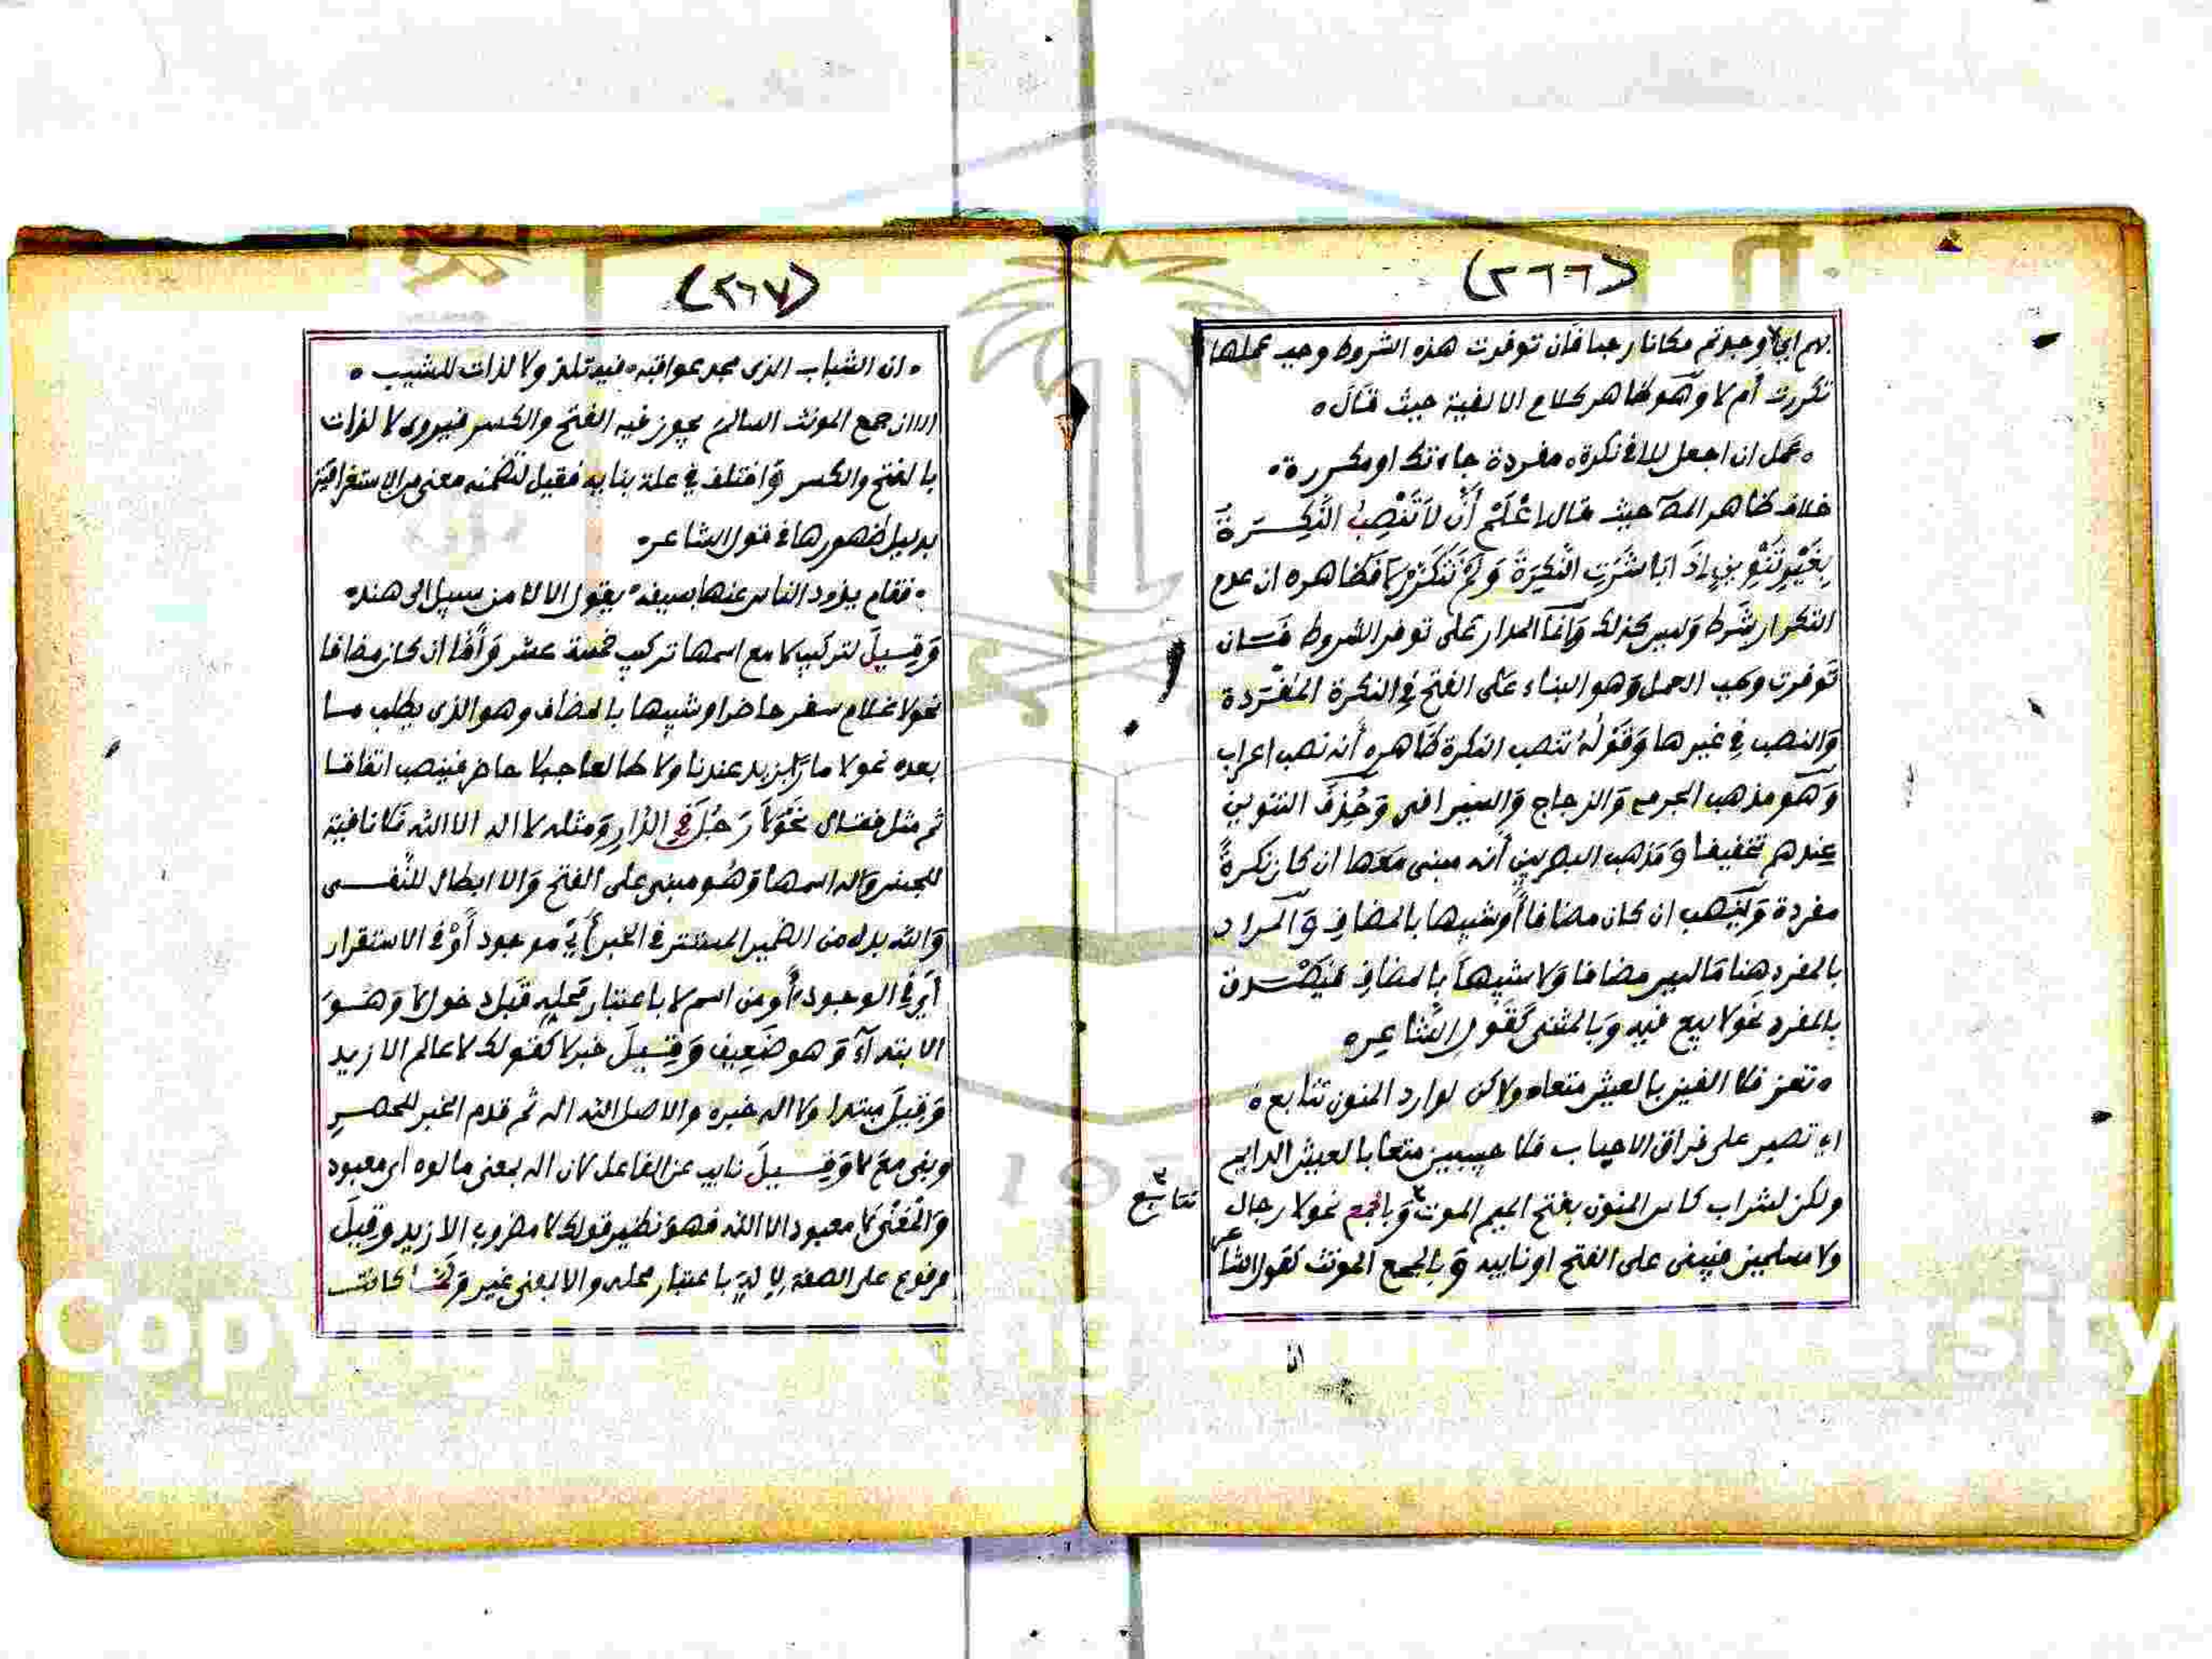 (٢٦٦)
بهم اي لا وجدتم مكانا رحبا فان توفرت هذه الشروط وجب عملها
تكررت أم لا وهو ظاهر كلام الالفية حيث قال ه
ه عمل ان اجعل للا في نكرة ه مفردة جاءتك او مكررة ه
خلاف ظاهر المص حيث قال اعْلَمْ أَنَّ لَا تَنْصِبُ النَّكِرَةَ
بِغَيْرِ تَنْوِينٍ إذَا بَاشَرَتِ النَّكِرَةَ وَلَمْ تَتَكَرَّرْ لا فظاهره ان عدم
التكرار شرط وليس كذلك وانما المدار على توفر الشروط فان
توفرت وجب العمل وهو البناء على الفتح في النكرة المفردة
والنصب في غيرها وقوله تنصب النكرة ظاهره أنه نصب اعراب
وهو مذهب الجرمي والزجاج والسيرافي وحُذِفَ التنوين
عندهم تخفيفا ومذهب البصريين أنه مبنى معها ان كان نكرة
مفردة وينصب ان كان مضافا أو شبيها بالمضاف والمراد
بالمفرد هنا ما ليس مضافا ولا شبيها بالمضاف فيصدق
بالمفرد نحو لا بيع فيه وبالمثنى كقول الشاعر ه
ه تعز فلا الفين بالعيش متعاه ولاكن لوارد المنون تتابع ه
اي تصبر على فراق الاحباب فلا حبيبين متعا بالعيش الدايم
ولكن لشراب كاس المنون بفتح الميم الموت ٣ وبالجمع نحو لا رجال
٣ تتابع
ولا مسلمين فيبنى على الفتح او نايبه وبالجمع المونث كقول الشاعر
ان
(٢٦٧)
ه ان الشباب الذى مجد عواقبه ه فيه تلذ ولا لذات للشيب ه
الاان جمع المونث السالم يجوز فيه الفتح والكسر فيروى لا لذات
بالفتح والكسر واختلف في علة بنايه فقيل لتضمنه معنى من الاستغراقية
بدليل ظهورها في قول الشاعر ه
ه فقام يذود الناس عنها بسيفه ه يقول الا لا من سبيل الى هند ه
وَقِيلَ لتركيب لا مع اسمها تركيب خمسة عشر وأما ان كان مضافا
نحو لا غلام سفر حاضر او شبيها بالمضاف وهو الذى يطلب ما
بعده نحو لا مارًا بزيد عندنا ولا طالعا جبلا حاضر فينصب اتفاقا
ثم مثل فقال نَحْوُ لَا رَجُلَ فِي الدَّارِ ومثله لا اله الا الله فلا نافية
للجنس واله اسمها وهو مبنى على الفتح والا ابطال للنفى
والله بدل من الضمير المستتر في الخبر أي موجود أوْ في الاستقرار
أي في الوجود أو من اسم لا باعتبار محله قبل دخول لا وهو
الابتدآء وهو ضعيف وَقِيلَ خبر لا كقولك لا عالم الا زيد
وقيل مبتدا ولا اله خبره والاصل الله اله ثم قدم الخبر للحصر
وبنى مع لا وَقِيلَ نايب عن الفاعل لان اله بمعنى مالوه أى معبود
والمعنى لا معبود الا الله فهو نظير قولك لا مضروب الا زيد وقيل
مرفوع على الصفة لإلهَ باعتبار محله والا بمعنى غير ولما كانت